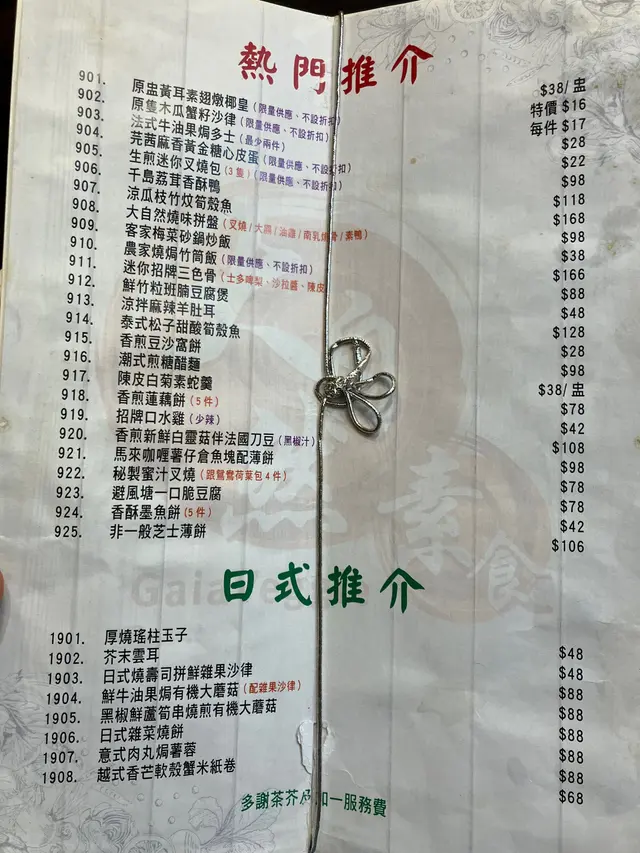 熱門推介
901. 原盅黃耳素翅燉椰皇(限量供應、不設折扣) $38/盅
902. 原隻木瓜蟹籽沙律(限量供應、不設折扣) 特價 $16
903. 法式牛油果焗多士(最少兩件) 每件 $17
904. 芫茜麻香黃金糖心皮蛋(限量供應、不設折扣) $28
905. 生煎迷你叉燒包(3隻)(限量供應、不設折扣) $22
906. 千島荔茸香酥鴨 $98
907. 涼瓜枝竹炆筍殼魚 $118
908. 大自然燒味拼盤(叉燒/大腸/油雞/南乳燒骨/素鴨) $168
909. 客家梅菜砂鍋炒飯 $98
910. 農家燒焗竹筒飯(限量供應、不設折扣) $38
911. 迷你招牌三色骨(士多啤梨、沙拉醬、陳皮 $166
912. 鮮竹粒班腩豆腐煲 $88
913. 涼拌麻辣羊肚耳 $48
914. 泰式松子甜酸筍殼魚 $128
915. 香煎豆沙窩餅 $28
916. 潮式煎糖醋麵 $98
917. 陳皮白菊素蛇羹 $38/盅
918. 香煎蓮藕餅(5件) $78
919. 招牌口水雞(少辣) $42
920. 香煎新鮮白靈菇伴法國刀豆(黑椒汁) $108
921. 馬來咖喱薯仔倉魚塊配薄餅 $98
922. 秘製蜜汁叉燒(跟鴛鴦荷葉包4件) $78
923. 避風塘一口脆豆腐 $78
924. 香酥墨魚餅(5件) $42
925. 非一般芝士薄餅 $106
日式推介
1901. 厚燒瑤柱玉子 $48
1902. 芥末雲耳 $48
1903. 日式燒壽司拼鮮雜果沙律 $88
1904. 鮮牛油果焗有機大蘑菇(配雜果沙律) $88
1905. 黑椒鮮蘆筍串燒煎有機大蘑菇 $88
1906. 日式雜菜燒餅 $88
1907. 意式肉丸焗薯蓉 $88
1908. 越式香芒軟殼蟹米紙卷 $68
多謝茶芥及加一服務費